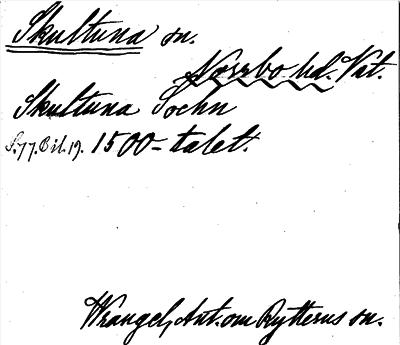 Skultuna sn.
Norrbo hd. Vstm.
Skultuna Sochn
S. 77. Bil. 19. 1500-talet.
Wrangel, Ant. om Rytterns sn.